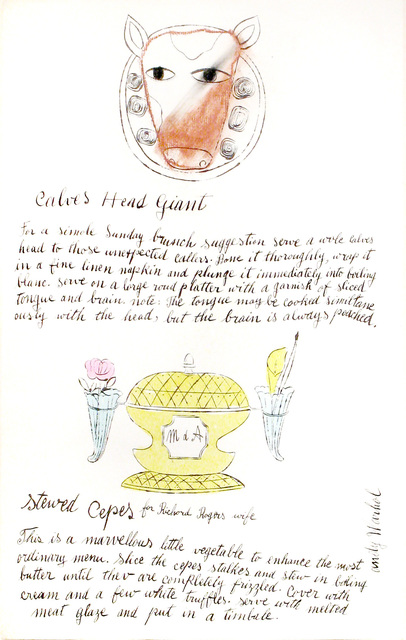 Calves Head Giant
For a simole Sunday brunch suggestion serve a wole calves
head to those unexpected callers. Bone it thoroughly, wrap it
in a fine linen napkin and plunge it immediately into boeling
blanc. Serve on a large roud platter with a garnish of sliced
tongue and brain. note: The tongue may be cooked simittane
ously with the head, but the brain is always poached.
M d A
Stewed Cepes for Richard Rogers wife
This is a marvellous little vegetable to enhance the most
ordinary menu. Slice the cepes stalkes and stew in boling
butter until thev are completely frizzled. Cover with
cream and a few white truffles. Serve with melted
meat glaze and put in a timbale.
Andy Warhol